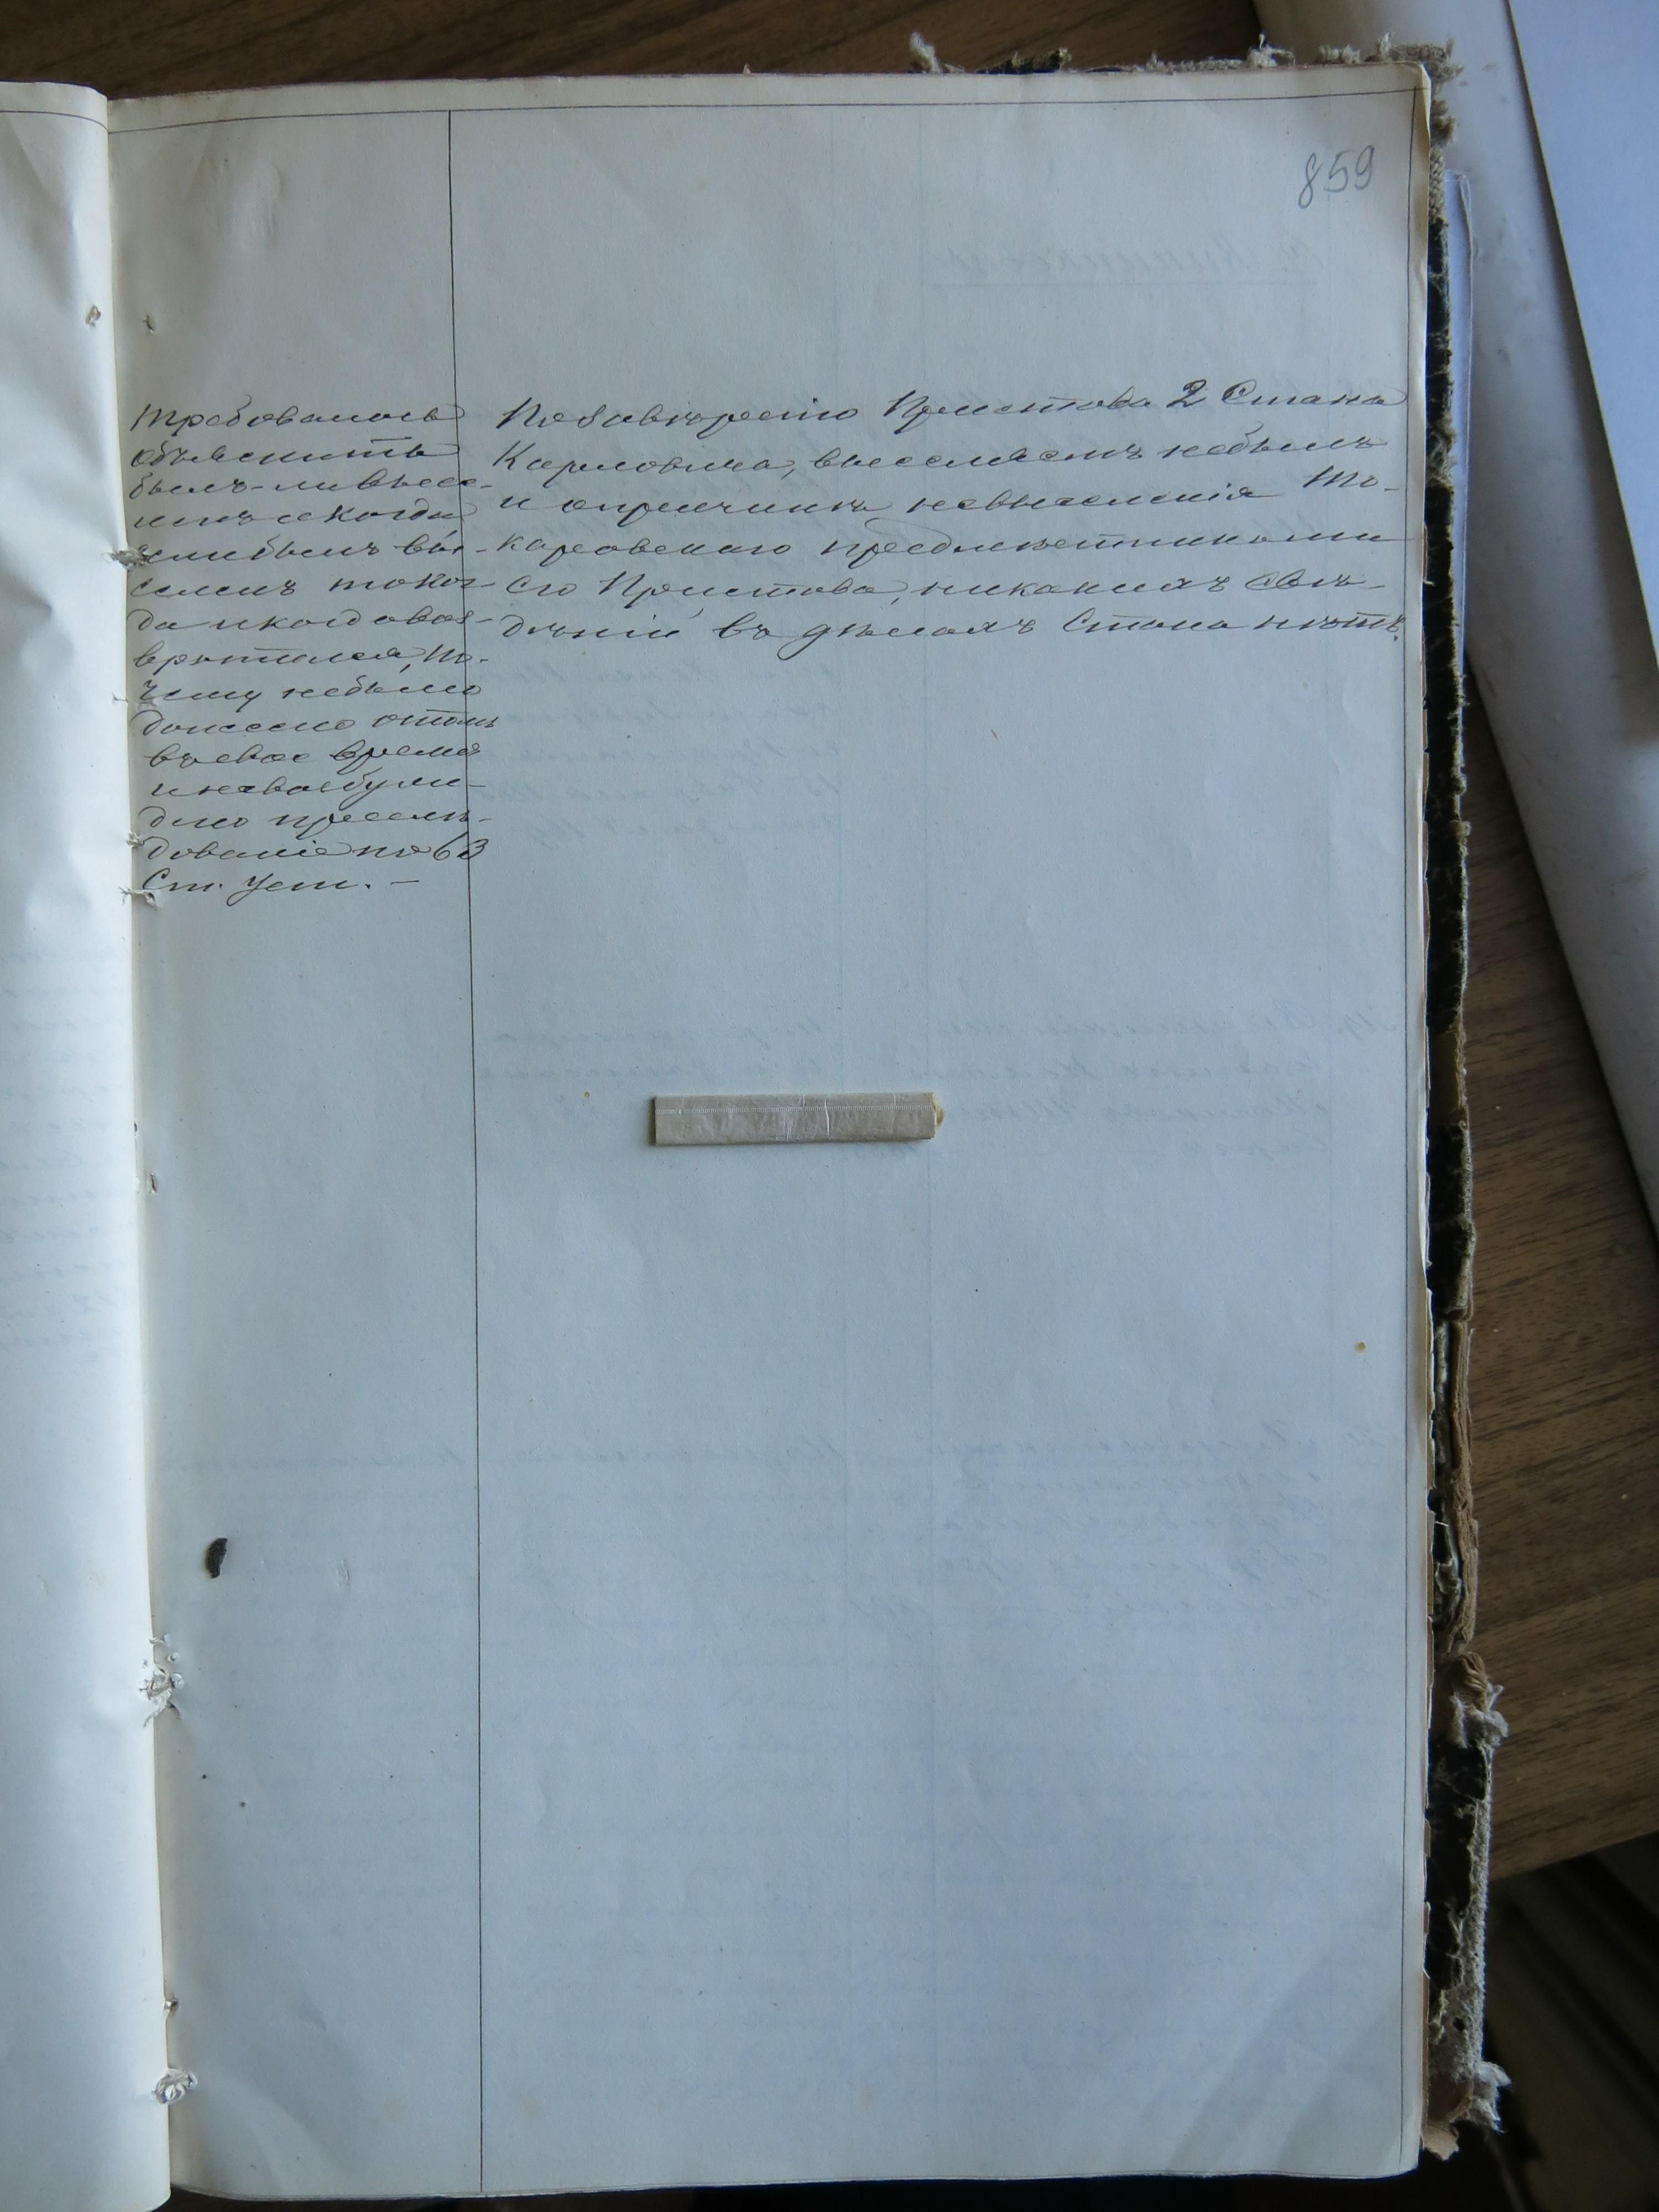 859
Требовалось
объяснить
былъ-ли высе-
ленъ и когда
если былъ вы-
селенъ то ког-
да и когда воз-
вратился, по-
чему небыло
донесено отомъ
въ свое время
и невозбуж-
дено преслѣ-
дованіе по 63
Ст. Уст. —
По завѣренію Пристава 2 Стана
Карповича, выселяемъ небылъ
и о причинѣ невыселенія То-
каровскаго предмѣстниками
его Пристава, никакихъ свѣ-
дѣній въ дѣлахъ Стана нѣтъ.